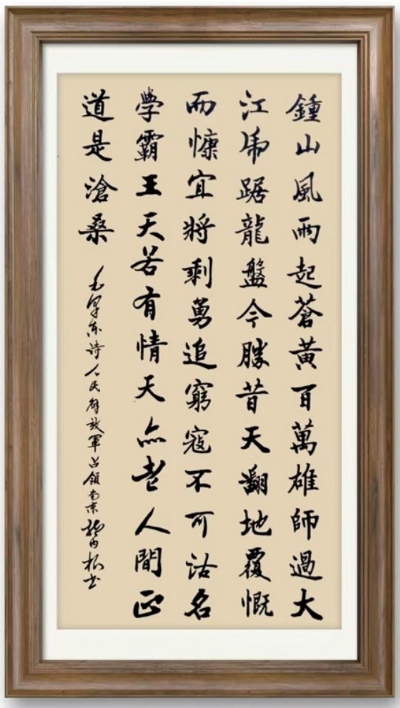 鍾山風雨起蒼黃百萬雄師過大
江虎踞龍盤今勝昔天翻地覆慨
而慷宜將剩勇追窮寇不可沽名
學霸王天若有情天亦老人間正
道是滄桑
毛澤東詩人民解放軍占領南京書